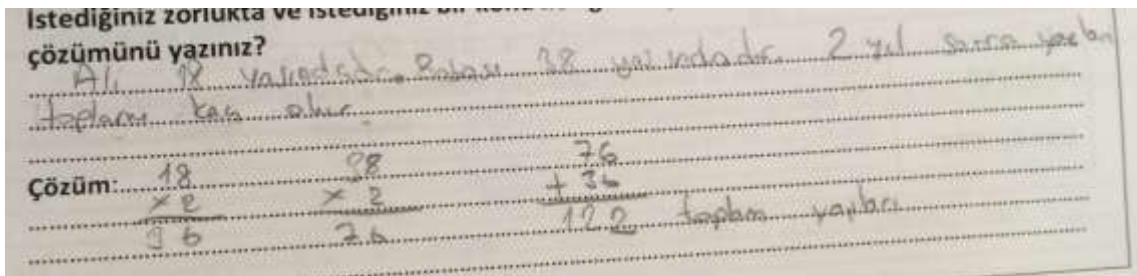 İstediğiniz zorlukta ve istediğiniz bir
çözümünü yazınız?
Ali 18 yaşındadır. Babası 38 yaşındadır. 2 yıl sonra yaşları
toplamı kaç olur.
Çözüm: 18 38 76
x 2 x 2 + 36
36 76 122 toplam yaşları